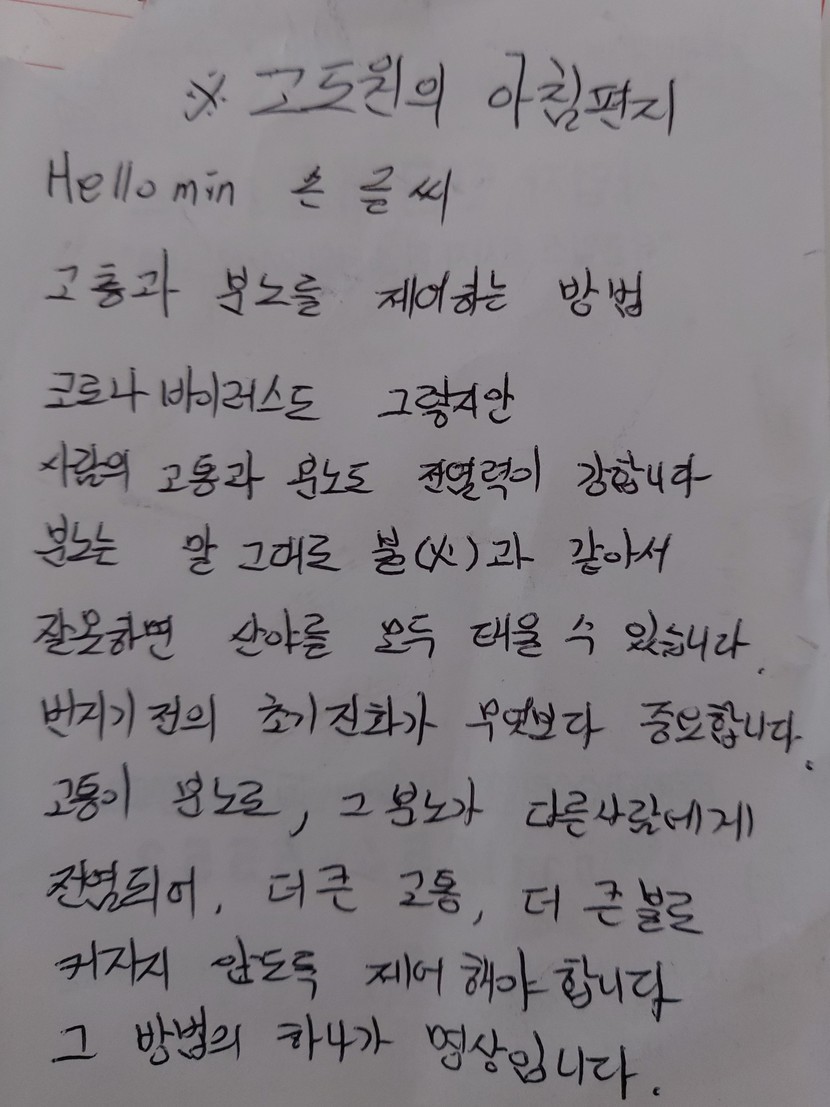 ※ 고도원의 아침편지
Hello min 손글씨
고통과 분노를 제어하는 방법
코로나 바이러스도 그렇지만
사람의 고통과 분노도 전염력이 강합니다
분노는 말 그대로 불(火)과 같아서
잘못하면 산야를 모두 태울 수 있습니다.
번지기 전의 초기진화가 무엇보다 중요합니다.
고통이 분노로, 그 분노가 다른사람에게
전염되어, 더 큰 고통, 더 큰 불로
커지지 않도록 제어해야 합니다
그 방법의 하나가 명상입니다.